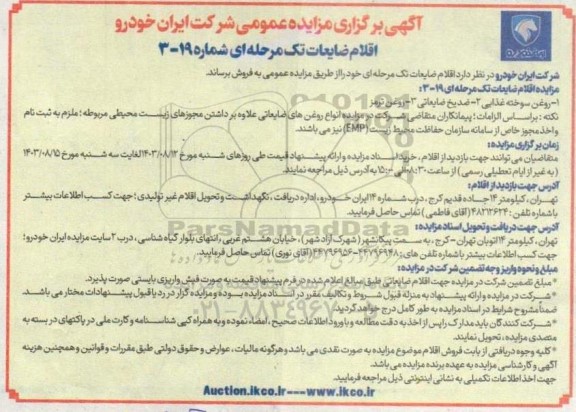 آگهی برگزاری مزایده عمومی شرکت ایران خودرو
اقلام ضایعات تک مرحله ای شماره ۱۹-۳
شرکت ایران خودرو در نظر دارد اقلام ضایعات تک مرحله ای خود را از طریق مزایده عمومی به فروش برساند.
مزایده اقلام ضایعات تک مرحله ای ۱۹-۳:
۱-روغن سوخته غذایی ۲-ضدیخ ضایعاتی ۳-روغن ترمز
نکته : براساس الزامات؛ پیمانکاران متقاضی شرکت در مزایده انواع روغن های ضایعاتی علاوه بر داشتن مجوزهای زیست محیطی مربوطه؛ ملزم به ثبت نام
و اخذ مجوز خاص از سامانه سازمان حفاظت محیط زیست (EMP) نیز می باشند.
زمان برگزاری مزایده:
متقاضیان می توانند جهت بازدید از اقلام ، خرید اسناد مزایده و ارائه پیشنهاد قیمت طی روزهای شنبه مورخ ۱۴۰۳/۰۸/۱۲ لغایت سه شنبه مورخ ۱۴۰۳/۰۸/۱۵
( به غیر از ایام تعطیلی رسمی ) از ساعت ۸:۳۰ الی ۱۵:۰۰ به آدرس ذیل مراجعه نمایند.
آدرس جهت بازدید از اقلام:
تهران، کیلومتر ۱۴ جاده قدیم کرج ، درب شماره ۱۴ ایران خودرو، اداره دریافت ، نگهداشت و تحویل اقلام غیر تولیدی؛ جهت کسب اطلاعات بیشتر
با شماره تلفن : ۴۸۲۱۳۶۲۴ (آقای فاطمی ) تماس حاصل فرمایید.
آدرس جهت دریافت و تحویل اسناد مزایده:
تهران، کیلومتر ۱۴ اتوبان تهران - کرج ، به سمت پیکانشهر ( شهرک آزادشهر) ، خیابان هشتم غربی، انتهای بلوار گیاه شناسی ، درب ۲ سایت مزایده ایران خودرو؛
جهت کسب اطلاعات بیشتر باشماره تلفن های: (آقای نوری ) تماس حاصل فرمایید.
مبلغ و نحوه واریز وجه تضمین شرکت در مزایده:
* مبلغ تضمین شرکت در مزایده جهت اقلام ضایعاتی طبق مبالغ اعلام شده در فرم پیشنهاد قیمت به صورت فیش واریزی بایستی صورت پذیرد.
* شرکت در مزایده و ارائه پیشنهاد به منزله قبول شروط و تکالیف مقرر در اسناد مزایده بوده و مزایده گزار در رد یا قبول پیشنهادات مختار می باشد.
ضمناً مشروح شرایط در اسناد مزایده به طور کامل درج خواهد گردید.
* شرکت کنندگان باید مدارک را پس از اخذ به دقت مطالعه و با ورود اطلاعات صحیح ، امضاء نموده و به همراه کپی شناسنامه و کارت ملی در پاکتهای در بسته به
متصدی مزایده، تحویل نمایند.
* کلیه وجوه دریافتی از بابت فروش اقلام موضوع مزایده به صورت نقدی می باشد و هرگونه مالیات ، عوارض و حقوق دولتی طبق مقررات و قوانین و همچنین هزینه
آگهی و کارشناسی مزایده به عهده برنده مزایده می باشد.
جهت اخذ اطلاعات تکمیلی به نشانی اینترنتی ذیل مراجعه فرمایید.
Auction.ikco.ir---www.ikco.ir
ParsNamadData
۰۲۱-۸۸۳۴۹۶۷۰